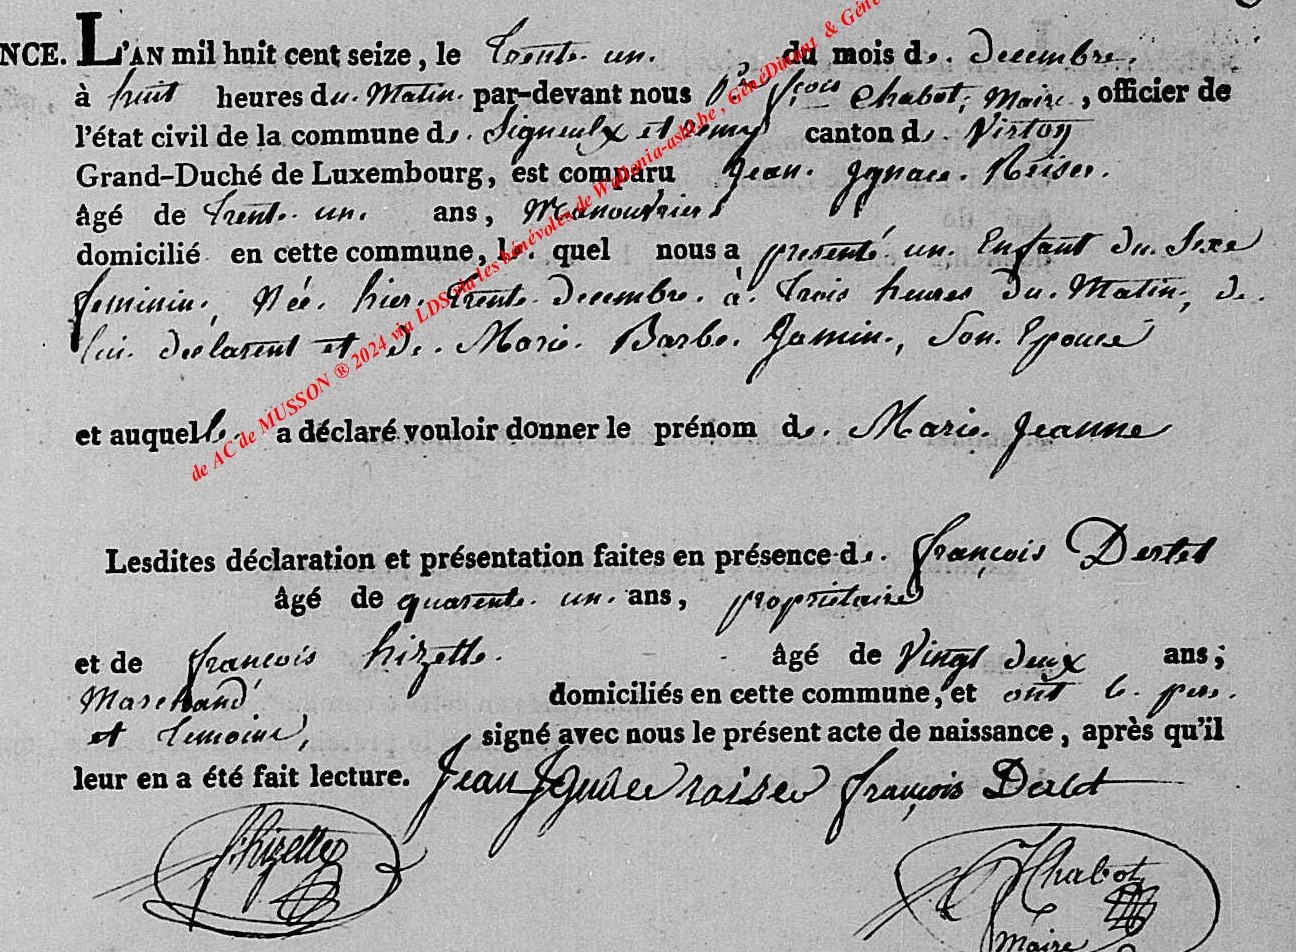 NCE. L'AN mil huit cent seize, le trente un. du mois de. decembre.
à huit heures du. Matin. par-devant nous fçois Chabot, Maire, officier de
l'état civil de la commune de. Signeulx et canton de. Virton
Grand-Duché de Luxembourg, est comparu Jean. Ignace. Reiser.
âgé de trente. un. ans, Manouvrier
domicilié en cette commune, le. quel nous a presenté un. Enfant du. Sexe
feminin, Née. hier. trente. decembre. à. trois heures du. Matin, de.
lui. declarent et de. Marie. Barbe. Jamin., Son. Epouse
et auquelle a déclaré vouloir donner le prénom de. Marie. Jeanne
Lesdites déclaration et présentation faites en présence de. françois Dertet
âgé de quarente. un. ans, proprietaire
et de françois hizette. âgé de Vingt deux ans;
Marchand domiciliés en cette commune, et ont le. pere.
et temoins, signé avec nous le présent acte de naissance, après qu'il
leur en a été fait lecture. Jean Ignace raiser françois
f. hizette
Chabot
Maire
de AC de MUSSON ® 2024 via LDS via les bénévoles de Wallonia-asbl.be, GénéDinant & Géné